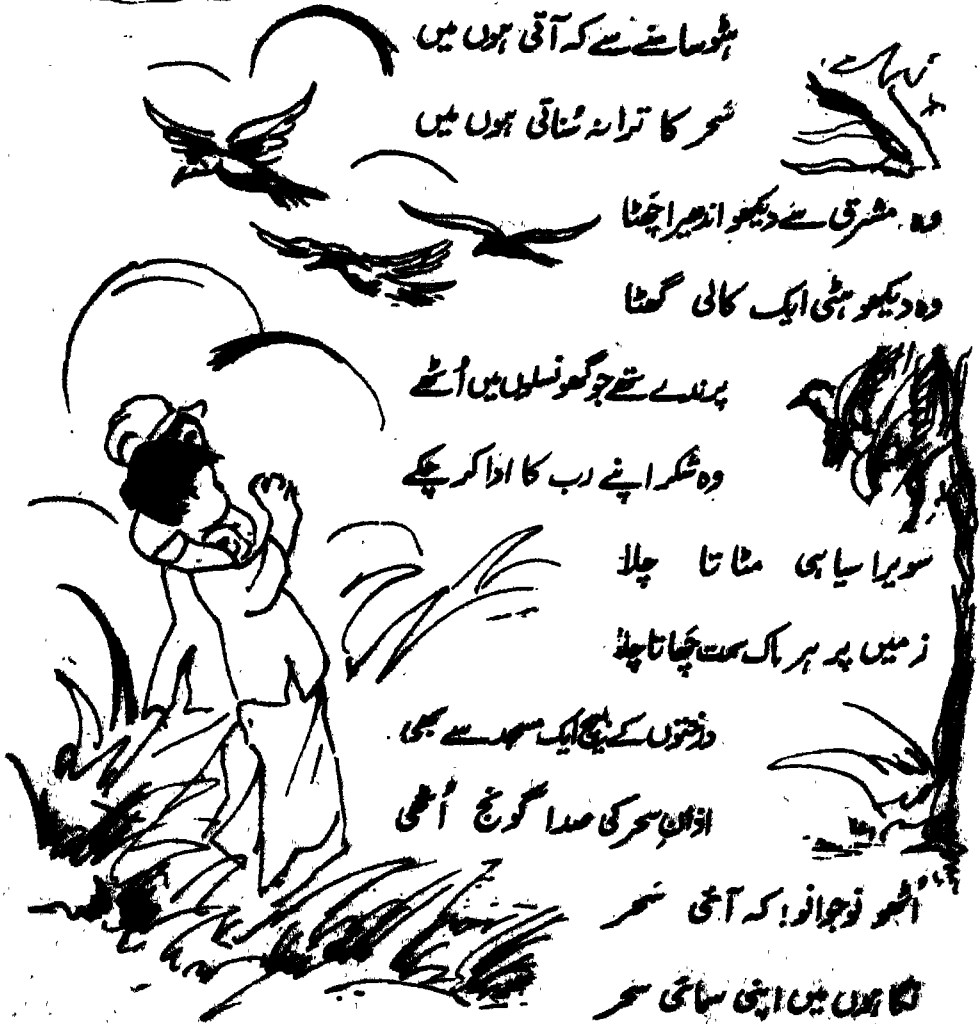 ہٹو سامنے سے کہ آتی ہوں میں
سَحر کا ترانہ سُناتی ہوں میں
وہ مشرق سے دیکھو اندھیرا چَھٹا
وہ دیکھو ہٹی ایک کالی گھٹا
پرندے تھے جو گھونسلوں میں اُٹھے
وہ شکر اپنے رب کا ادا کر چکے
سویرا سیاہی مٹاتا چلا
زمیں پر ہر اک سمت چَھاتا چلا
درختوں کے بیچ ایک مسجد سے بھی
اذانِ سحر کی صدا گونج اُٹھی
اُٹھو نوجوانو! کہ آئی سَحر
نگاہوں میں اپنی سمائی سحر